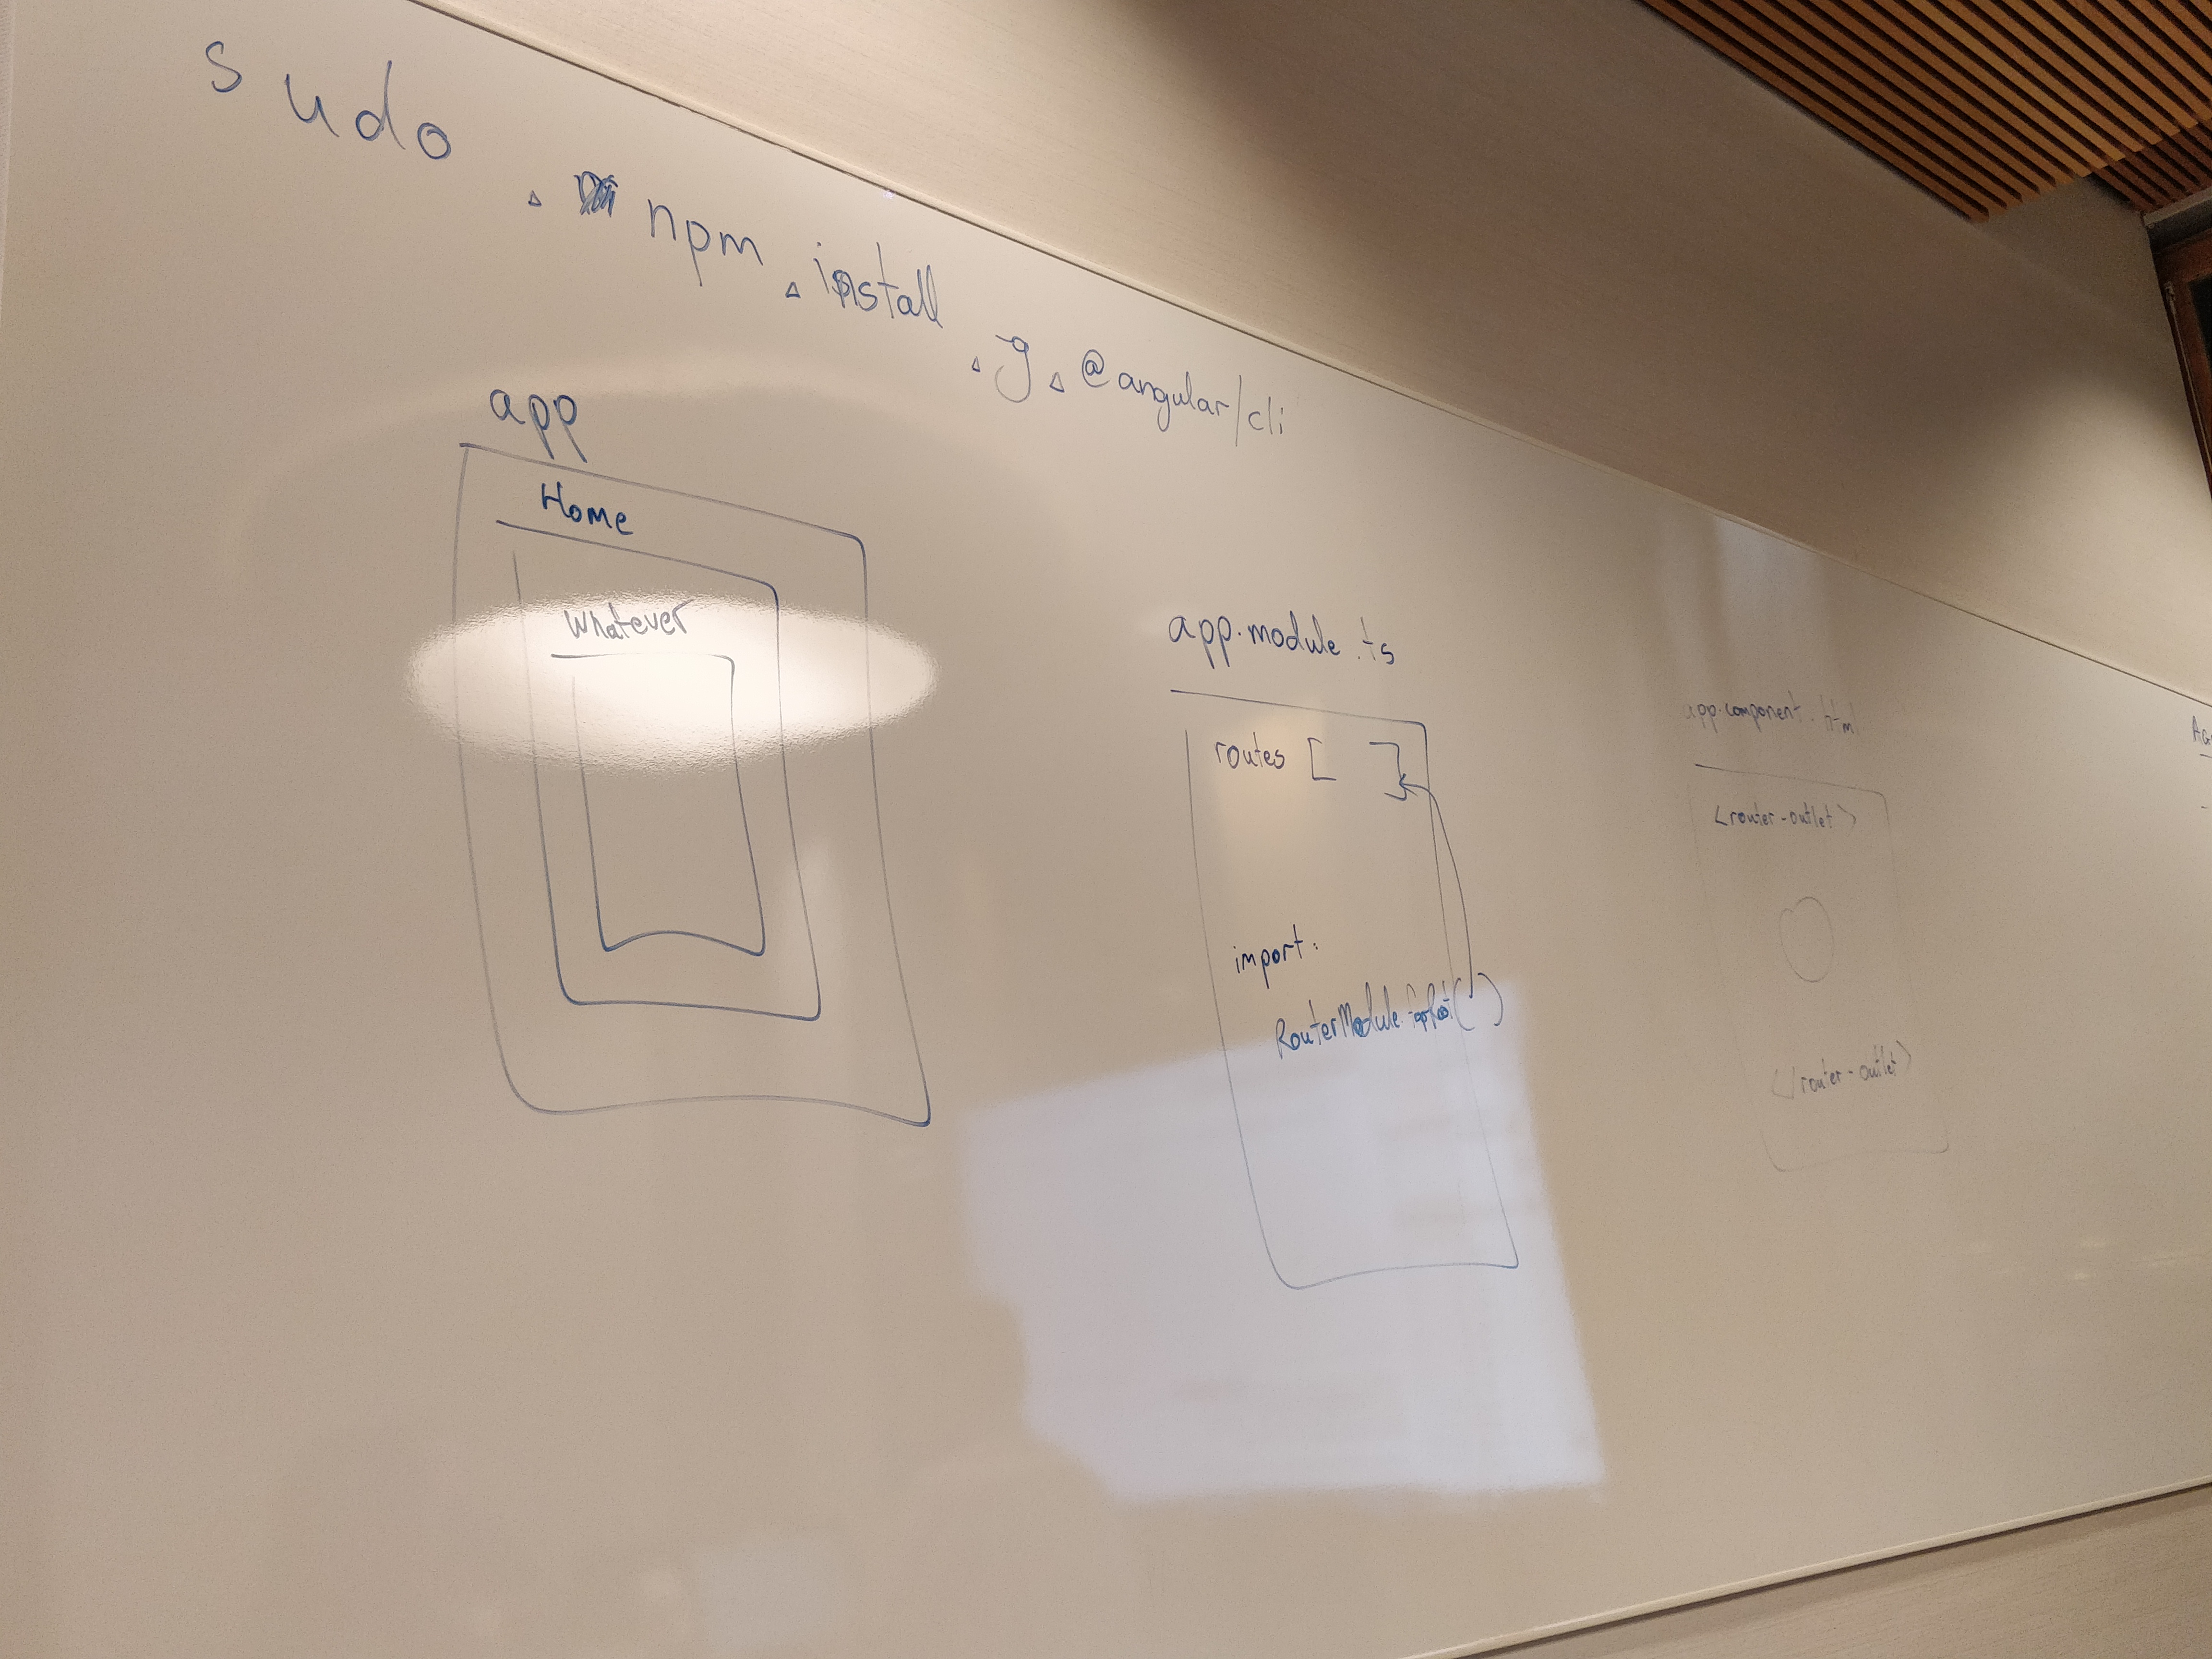 sudo npm install g @angular/cli
app
Home
Whatever
app.module.ts
routes [ ]
import:
RouterModule.forRoot( )
app.component.html
<router-outlet>
</router-outlet>